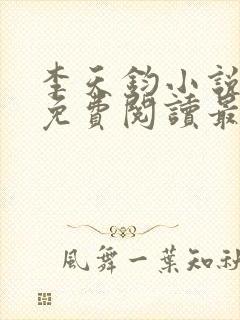 李天鈞小說
免費閱讀最
風舞一葉知秋